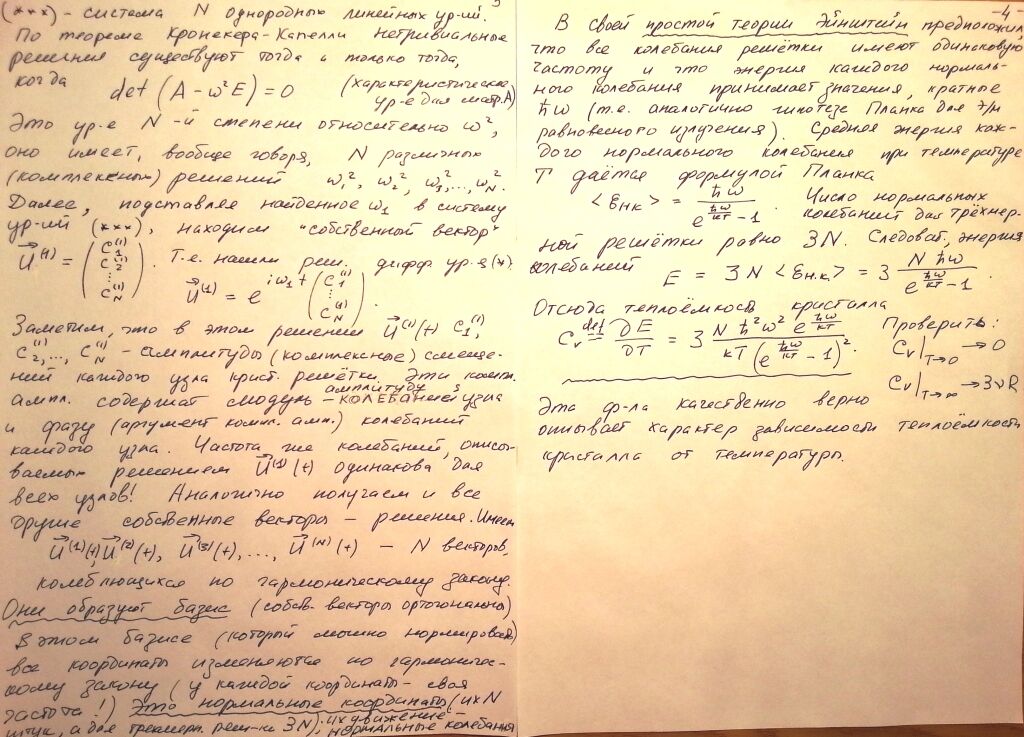 (***) - система N однородных линейных ур-ий.
По теореме Кронекера-Капелли нетривиальные
решения существуют тогда и только тогда,
когда det (A - ω²E) = 0 (характеристическое
ур-е для матр. A)
Это ур-е N-й степени относительно ω²,
оно имеет, вообще говоря, N различных
(комплексных) решений ω₁², ω₂², ω₃², ..., ω_N².
Далее, подставляя найденное ω₁ в систему
ур-ий (***), находим "собственный вектор"
U⃗⁽¹⁾ = (C₁⁽¹⁾ C₂⁽¹⁾ ⋮ C_N⁽¹⁾). Т.е. нашли реш. дифф. ур-я (*).
U⃗⁽¹⁾ = e^{iω₁t} (C₁⁽¹⁾ ⋮ C_N⁽¹⁾).
Заметим, что в этом решении U⃗⁽¹⁾(t) C₁⁽¹⁾,
C₂⁽¹⁾, ..., C_N⁽¹⁾ - амплитуды (комплексные) смеще-
ний каждого узла крист. решётки. Эти компл.
ампл. содержат модуль - амплитуду колебаний узла
и фазу (аргумент компл. амп.) колебаний
каждого узла. Частота же колебаний, описы-
ваемых решением U⃗⁽¹⁾(t) одинакова для
всех узлов! Аналогично получаем и все
другие собственные векторы - решения. Имеем
U⃗⁽¹⁾(t), U⃗⁽²⁾(t), U⃗⁽³⁾(t), ..., U⃗⁽ᴺ⁾(t) - N векторов,
колеблющихся по гармоническому закону.
Они образуют базис (собств. векторы ортогональны)
В этом базисе (который можно нормировать)
все координаты изменяются по гармоничес-
кому закону (у каждой координаты - своя
частота!) Это нормальные координаты (их N
штук, а для трёхмерн. реш-ки 3N), их движение -
нормальные колебания
-4-
В своей простой теории Эйнштейн предположил,
что все колебания решётки имеют одинаковую
частоту и что энергия каждого нормаль-
ного колебания принимает значения, кратные
ħω (т.е. аналогично гипотезе Планка для э/м
равновесного излучения). Средняя энергия каж-
дого нормального колебания при температуре
T даётся формулой Планка
<ε_нк> = ħω / (e^{ħω/kT} - 1). Число нормальных
колебаний для трёхмер-
ной решётки равно 3N. Следоват., энергия
колебаний E = 3N <ε_н.к.> = 3 Nħω / (e^{ħω/kT} - 1).
Отсюда теплоёмкость кристалла
C_v def= ∂E/∂T = 3 N ħ²ω² e^{ħω/kT} / (kT (e^{ħω/kT} - 1)².
Проверить:
C_v|_{T→0} → 0
C_v|_{T→∞} → 3νR
Эта ф-ла качественно верно
описывает характер зависимости теплоёмкости
кристалла от температуры.